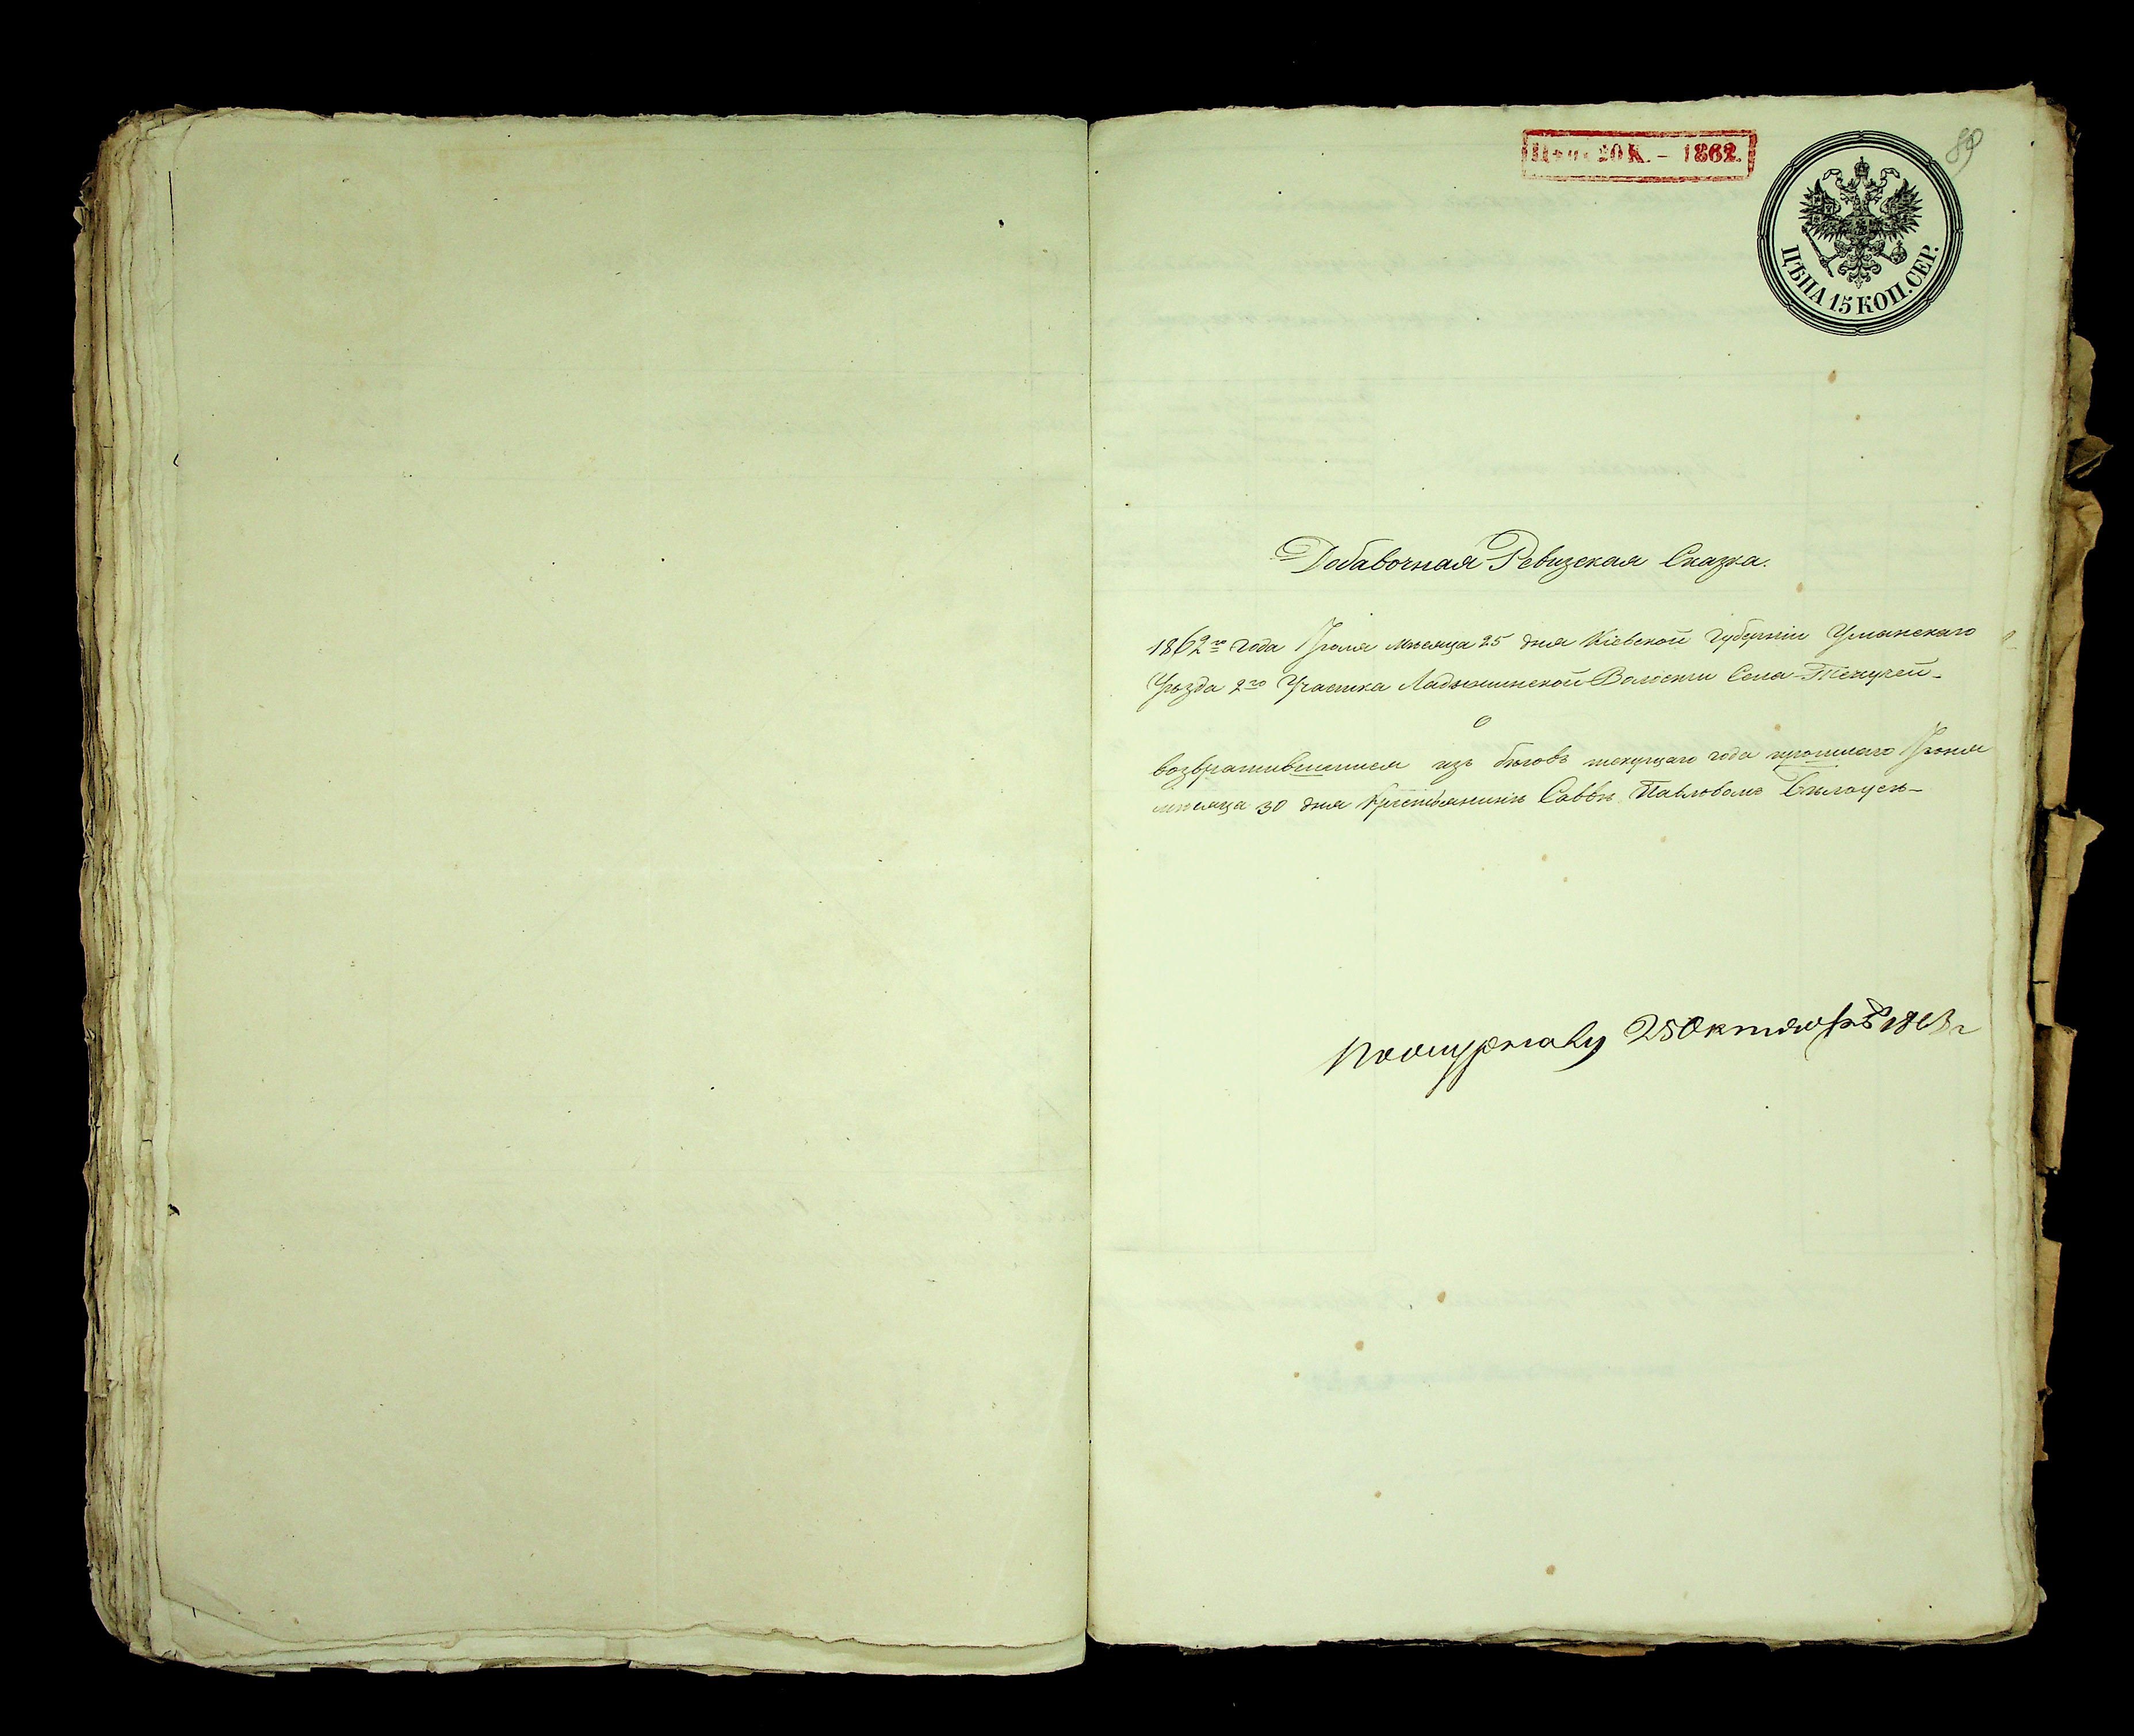 Цѣна 20 К. – 1862.
89
ЦѢНА 15 КОП. СЕР.
Добавочная Ревизская Сказка.
1862го года Іюля мѣсяца 25 дня Кіевской Губерніи Уманскаго
Уѣзда 2го Участка Ладыжинской Волости Села Текучей
о
возвратившимся изъ бѣговъ текущаго года прошлаго Іюня
мѣсяца 30 дня Крестьянинѣ Саввѣ Павловомъ
25 Октября 1863 г